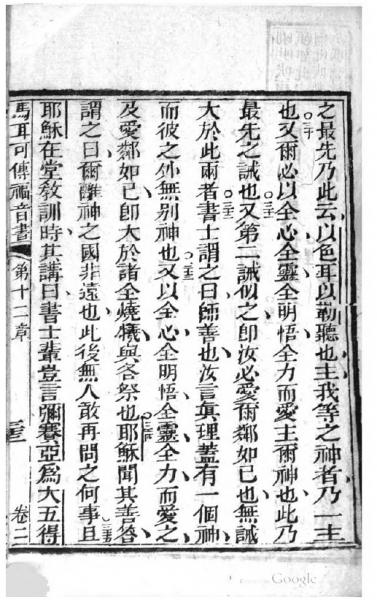 之最先乃此云以色耳以勒聽也主我等之神者乃一主
三十
也又爾必以全心全靈全明悟全力而愛主爾神也此乃
三十一
最先之誡也又第二誡似之即汝必愛爾鄰如己也無誡
三十二
大於此兩者書士謂之曰師善也汝言真理蓋有一個神
三十三
而彼之外無別神也又以全心全明悟全靈全力而愛之
及愛鄰如己即大於諸全燒犧與各祭也耶穌聞其善答
三十五
謂之曰爾離神之國非遠也此後無人敢再問之何事且
耶穌在堂教訓時其講曰書士輩豈言彌賽亞為大五得
馬耳可傳福音書 第十二章 卷二
Google